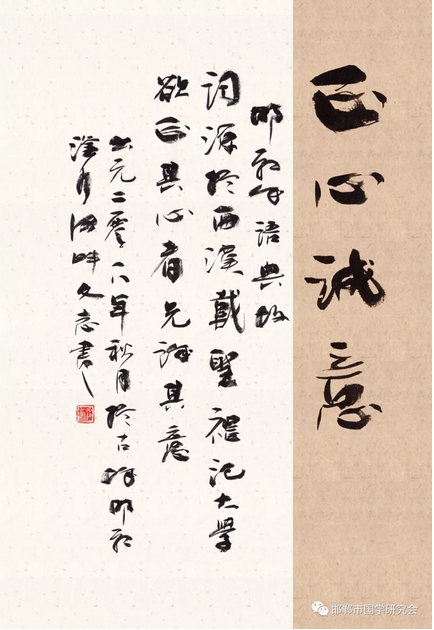 正心诚意
邯郸成语典故
词源于西汉戴圣礼记大学
欲正其心者先诚其意
公元二零一八年秋月于古赵邯郸
滏河畔文志书
邯郸市国学研究会